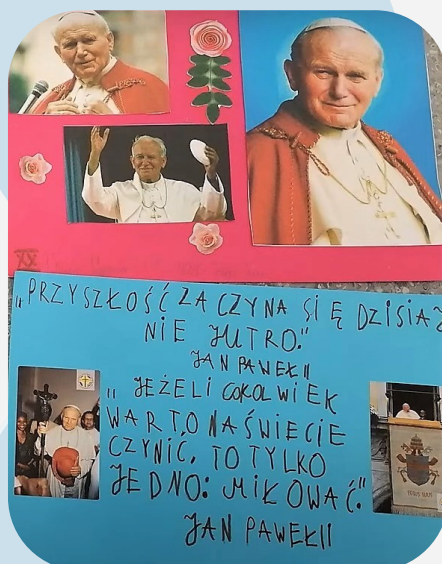 „PRZYSZŁOŚĆ ZACZYNA SIĘ DZISIAJ
NIE JUTRO."
JAN PAWEŁ II
„JEŻELI COKOLWIEK
WARTO NA ŚWIECIE
CZYNIĆ, TO TYLKO
JEDNO: MIŁOWAĆ."
JAN PAWEŁ II